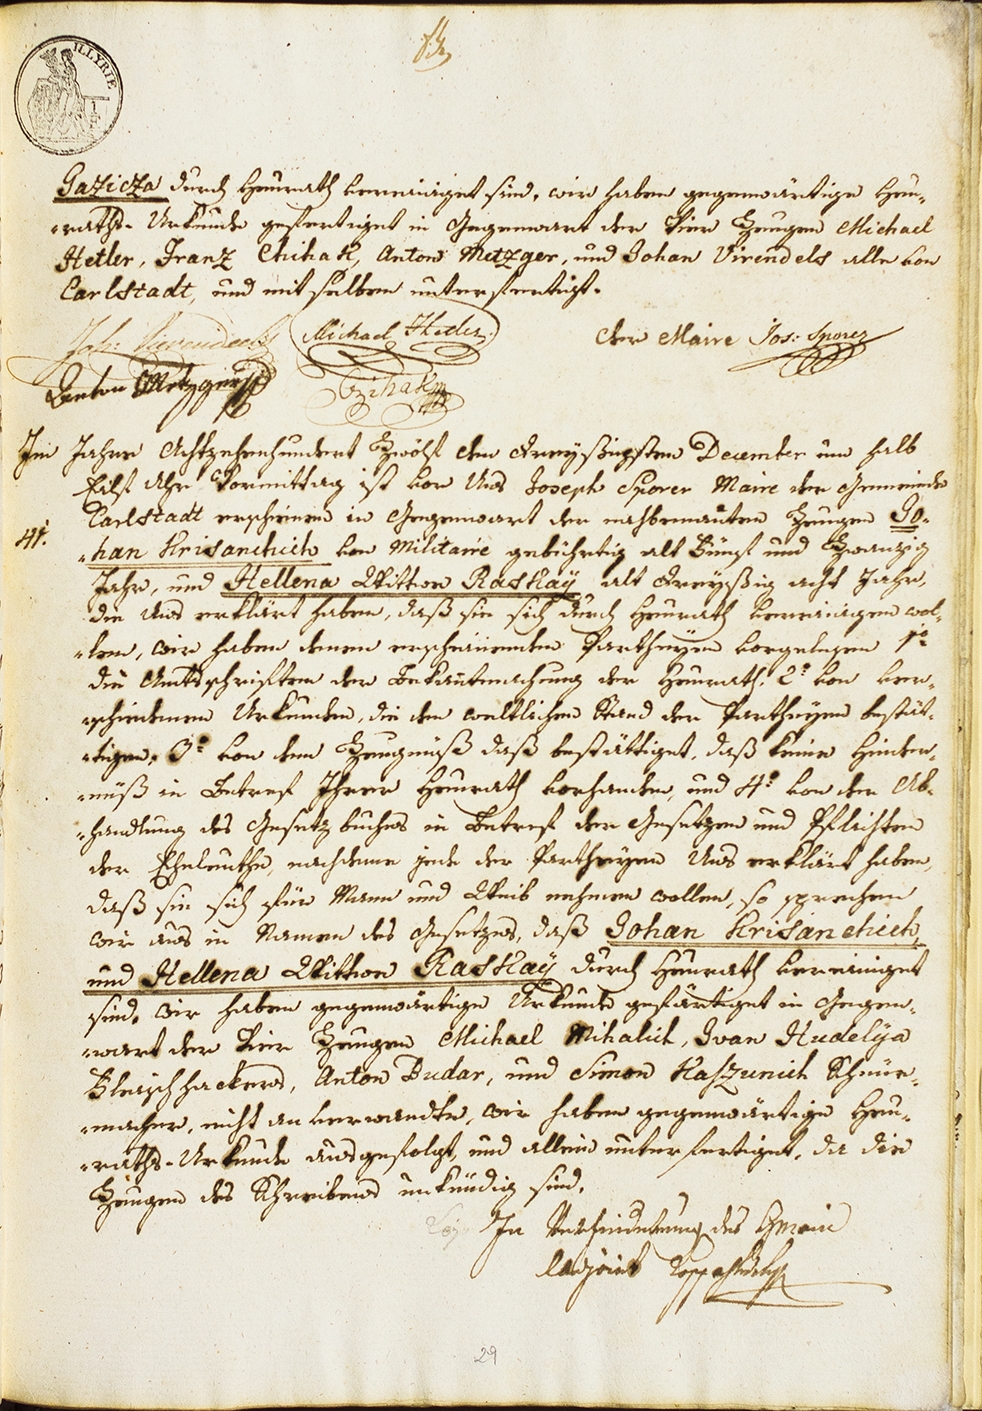 ILLYRIE
Gazicza durch Heurath vereiniget sind. wir haben gegenwärtige Heu-
-raths-Urkunde gefertiget in Gegenwart der vier Zeugen Michael
Hetler, Franz Chihak, Anton Metzger, und Johan Virendels alle von
Carlstadt, und mit selben unterfertigt.
Joh: Michael Hetler der Maire Jos: Sporer
Anton Metzger Czihak
Im Jahre Achtzehenhundert Zwölf den dreyßigsten December um halb
Eilf Uhr Vormittag ist vor Uns Joseph Sporer Maire der Gemeinde
Carlstadt erschienen in Gegenwart der nachbenanten Zeugen Jo-
41.
-han Krisanchich von Militaire gebührtig alt Fünf und Zwanzig
Jahr, und Hellena Wittwe Raskay alt dreyßig acht Jahr,
die uns erklärt haben, daß sie sich durch Heurath vereinigen wol-
-len, wir haben denen erscheinenden Partheyen vorgelesen 1o
die Amtsschriften der Bekantmachung der Heurath. 2o von ver-
-schiedenen Urkunden, die den weltlichen Stand der Partheyen bestät-
-tigen, 3o von dem Zeugnüß daß bestättiget, daß keine Hinder-
-nüß in Betref Ihrer Heurath vorhanden, und 4o von der Ab-
-handlung des Gesetz buches in Betref der Gesetzen und Pflichten
der Eheleuthe, nachdeme jede der Partheyen Uns erklärt haben,
daß sie sich für Mann und Weib nehmen wollen, so sprechen
wir aus in Namen des Gesetzes, daß Johan Krisanchich,
und Hellena Wittwe Raskay durch Heurath vereiniget
sind. wir haben gegenwärtige Urkunde gefärtiget in Gegen-
-wart der vier Zeugen Michael Mihalich, Ivan Hudelya
Fleischhackers, Anton Budar, und Simon Kaszunich
-macher, nicht anverwandte, wir haben gegenwärtige Heu-
-raths-Urkunde ausgefolgt, und allein unterfertiget, da die
Zeugen des Schreibens unkündig sind.
In Verhinderung des Hr Maire
l'adjoint
29